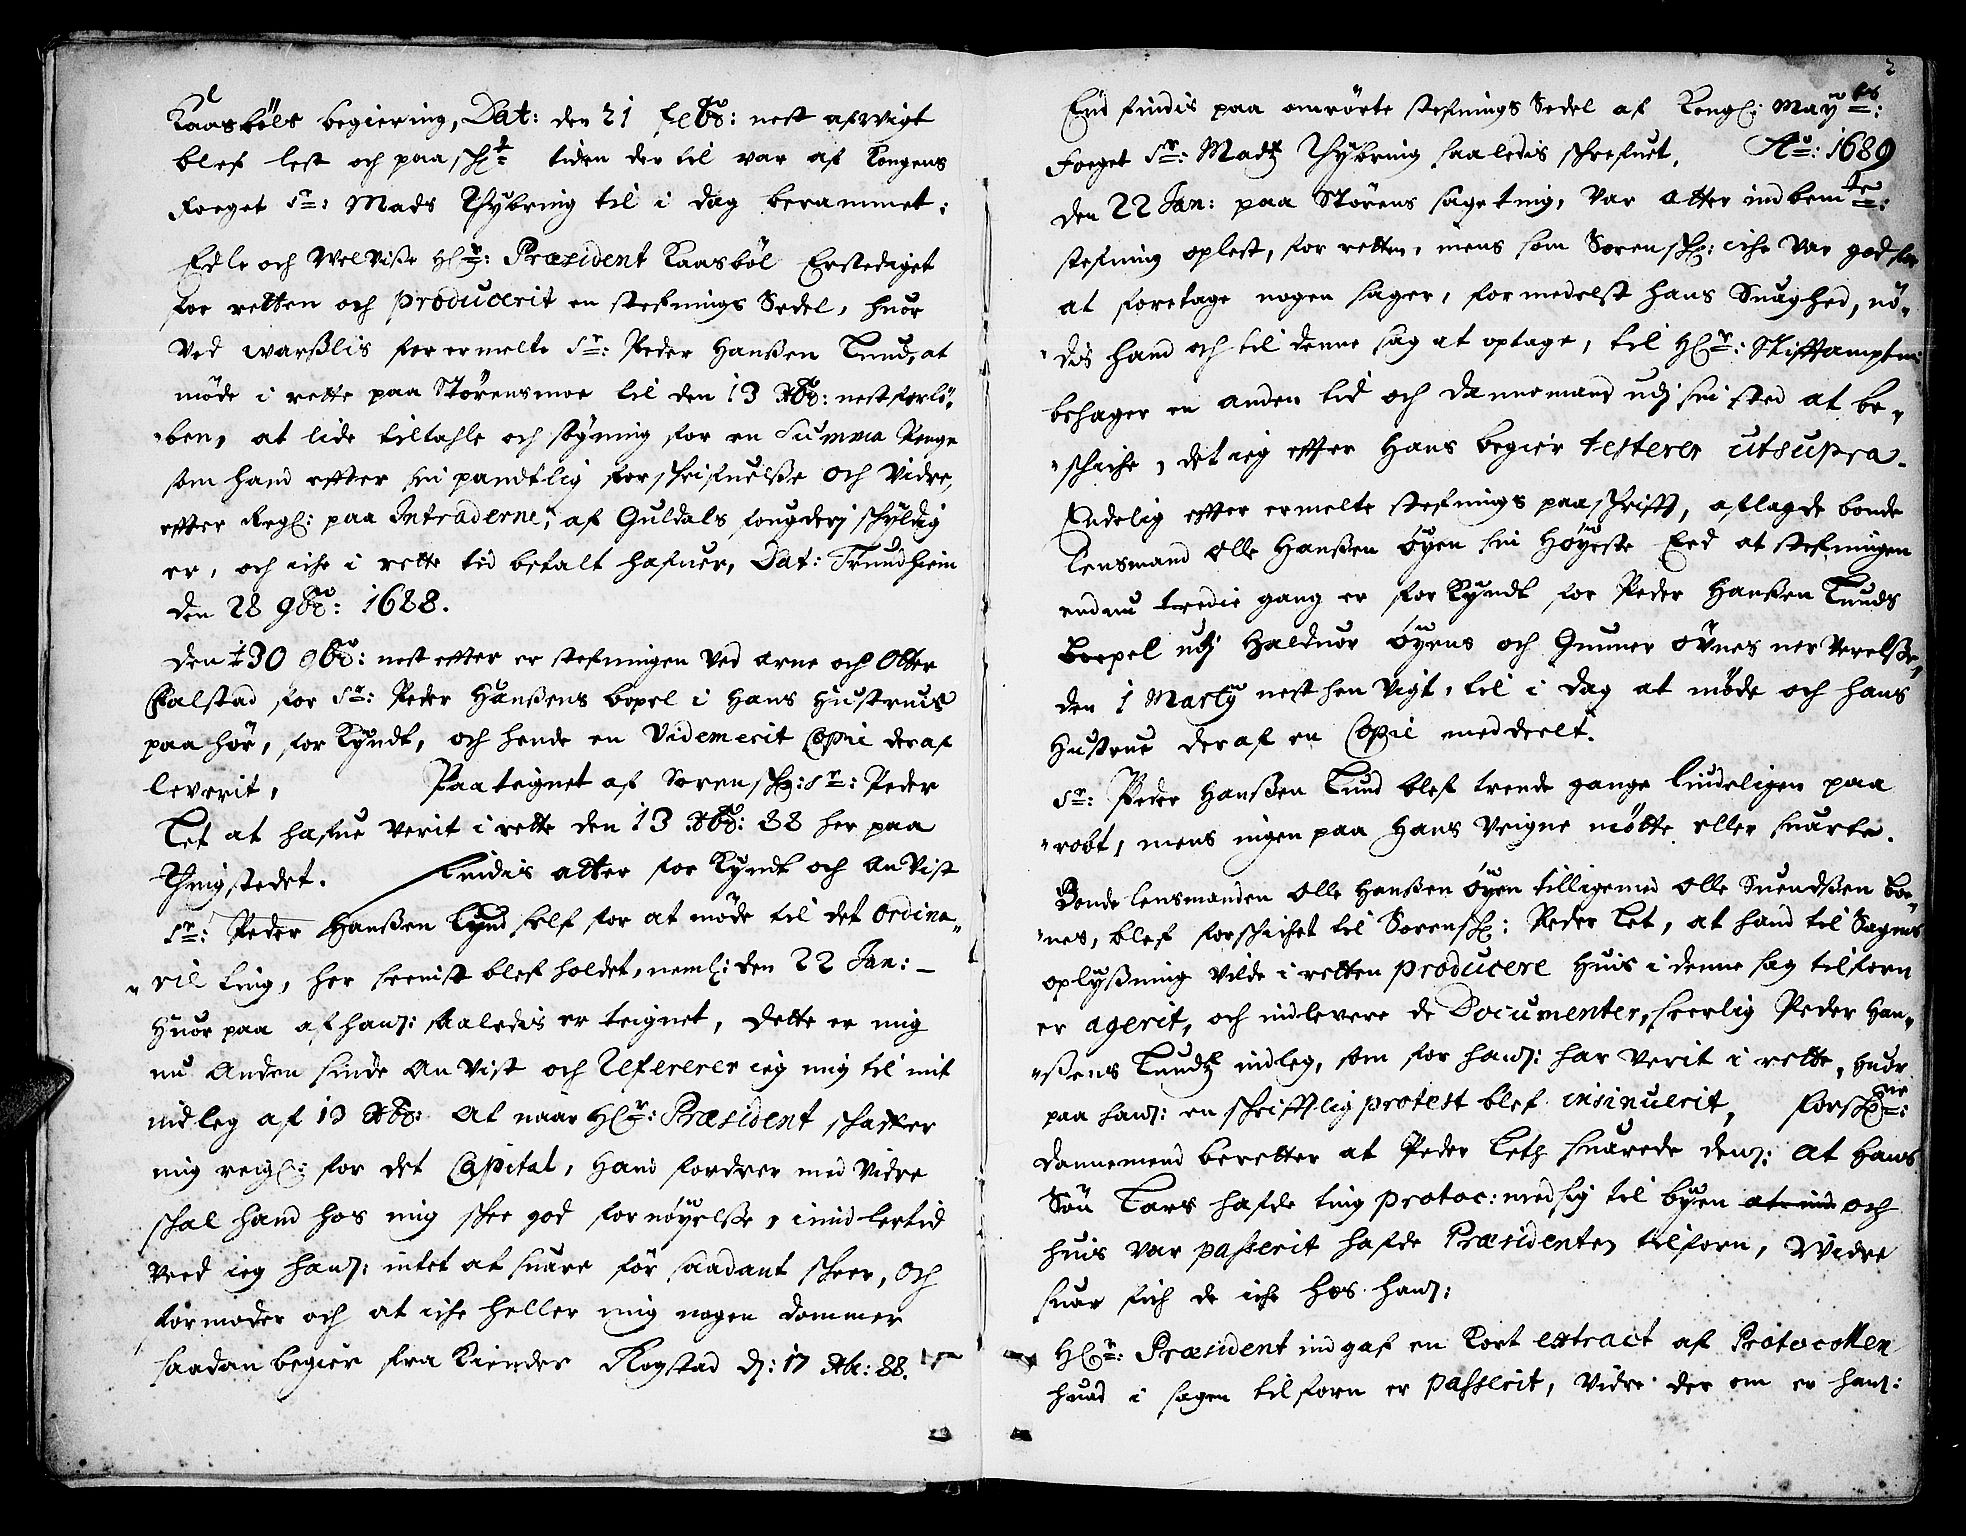 Kaasböls begiering, Dat: den 21 Febr: nest afvigt
blef lest och paa schr: tiden der til var af Kongens
Foeget Sr: Mads Thybring til i dag berammet:
Edle och Velviße Hr: Præsident Kaasböl Erstediget
for retten och producerit en stefnings Sedel, huor
ved warßlis forermelte Sr: Peder Hanßen Lund, at
möde i rette paa Störensmoe til den 13 Xbr: nest forlö-
ben, at lide tiltahle och sögning for en Summa Penge
som hand effter sin pandtlig forschrifuelße och Vidre,
effter Regl: paa Intraderne, af Guldals fougderj schyldig
er, och iche i rette tid betalt hafuer, Dat: Trundhiem
den 28 9br: 1688.
den 30 9br: nest efter er stefningen ved Arne och Otter
Falstad for Sr: Peder Hanßens bopel i Hans Hustrues
paahör, for Kyndt, och hende en Videmerit Copie deraf
leverit, Paateignet af Sorenschr: Sr: Peder
Let at hafue verit i rette den 13 Xbr: 88 her paa
Thingstedet. Findis atter for Kyndt och An Vist
Sr: Peder Hanßen Lund self for at möde til det Ordina-
ril ting, her seenist blef holdet, neml: den 22 Jan: -
Huor paa af hans: saaledis er teignet, dette er mig
nu Anden sinde An Vist och Refererer ieg mig til mit
indleg af 13 Xbr: At naar Hr: Præsident schaffer
mig reigl: for det Capital, Hand fordrer med Vidre
schal hand hos mig schee god fornöyelße, imidlertid
Veed ieg hans: intet at suare för saadant scheer, och
formoder och at iche heller mig nogen dommer
saadan begier fra Kiender Rogstad d: 17 Xbr: 88.
End findis paa omrörte stefnings Sedel af Kongl: Mayts:
Foeget Sr: Madtz Thybring saaledis schrefuet, Ao: 1689
den 22 Jan: paa Störens sageting, Var atter indbemte:
stefning oplest, for retten, mens som Sorenschr: iche Var god for
at foretage nogen sager, formedelst hans Suaghed, nö-
dis hand och til denne sag at optage, til Hr: Stifftamptm:
behager en anden tid och Dannemand udj sin sted at be-
schiche, det ieg effter Hans begier testerer utsupra.
Endelig effter ermelte stefnings paaschrifft, aflagde bonde
Lensmand Olle Hanßen öyen sin Höyeste Eed at stefningen
endnu tredie gang er for Kyndt for Peder Hanßen Lunds
Boepel udj Halduor öyens och Gunner övnes nerverelße,
den 1 Marty nest hen Vigt, til i Dag at möde och hans
Hustrue deraf en Copie meddeelt.
Sr: Peder Hanßen Lund blef trende gange liudeligen paa
robt, mens ingen paa Hans Veigne mötte eller suarte.
Bonde Lensmanden Olle Hanßen öyen tilligemed Olle Suendßen boe-
nes, blef forschichet til Sorenschr: Peder Let, at hand til Sagens
oplyßning Vilde i retten producere Huis i denne sag tilforn
er agerit, och indlevere de Documenter, seerlig Peder Han-
ßens Lundtz indleg, som for hans: har verit i rette, Huor
paa hans: en schrifftlig protest blef insinuerit, forschne:
Dannemend beretter at Peder Leth suarede dens: At Hans
Sön Lars hafde ting protoc: med sig til byen at ind och
huis var passerit hafde Præsidenten tilforn, Widre
suar fich de iche hos hans:
Hr: Præsident indgaf en Kort extract af Protocollen
huad i sagen tilforn er passerit, Vidre der om er hans: